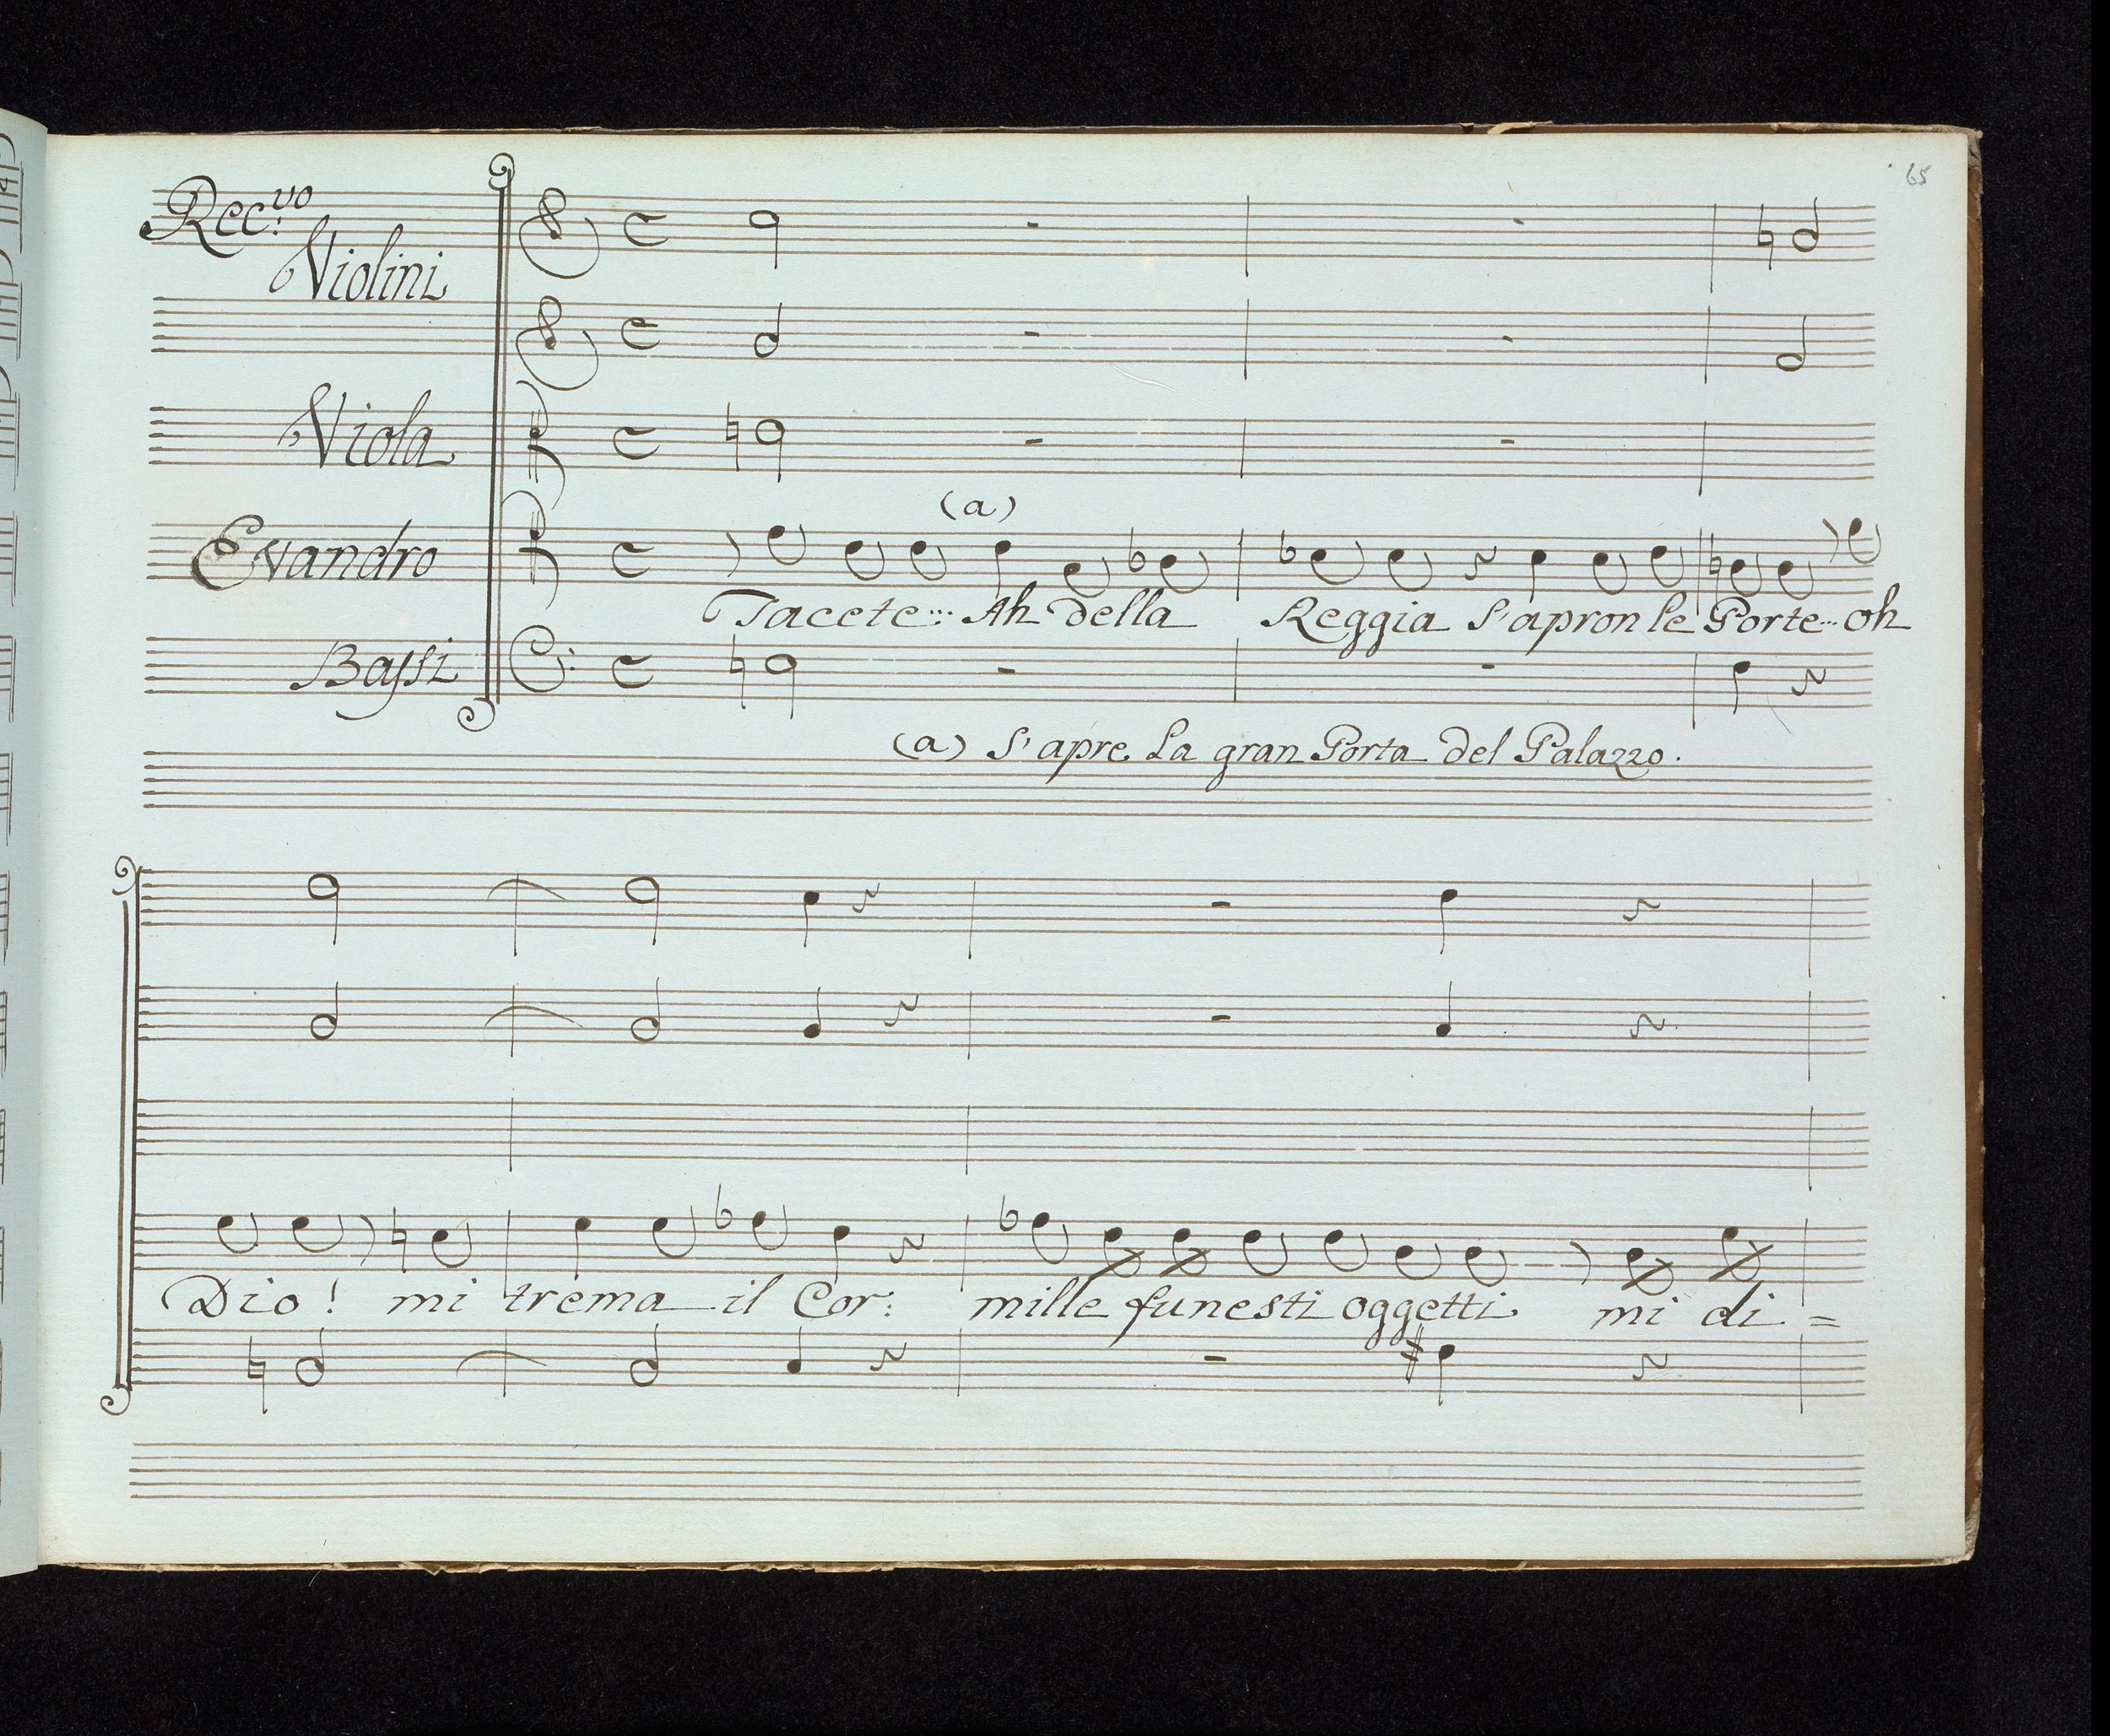 65
Rec:vo
Violini
Viola
(a)
Evandro
Tacete... Ah della Reggia S'apron le Porte... oh
Bassi
(a) S'apre La gran Porta del Palazzo.
Dio! mi trema il Cor: mille funesti oggetti mi di =